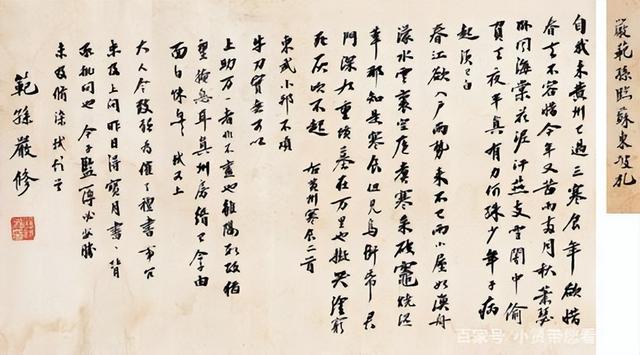 嚴範孫臨蘇東坡札
自我來黃州已過三寒食年欲惜
去不容惜今年又苦雨兩月秋蕭瑟
卧聞海棠花泥汙燕支雪闇中偷
負去夜半真有力何殊少年子病
起須已白
春江欲入戶雨勢來不已雨小屋如漁舟
濛水雲裏空庖煮寒菜破竈燒濕
葦那知是寒食但見烏銜帋君
門深九重墳墓在万里也擬哭塗窮
死灰吹不起 右黃州寒食二首
東武小邦不煩
牛刀實無可以
上助万一者非不盡也雖隔數政猶
望掩惡耳真州房緡已令子由
面白悚息 軾又上
大人令致懇為催了禮書事冗
未及上問昨日得寶月書背
承批問也令子監簿必安勝
未及修染軾
範孫嚴修
百家号/小贤带您看